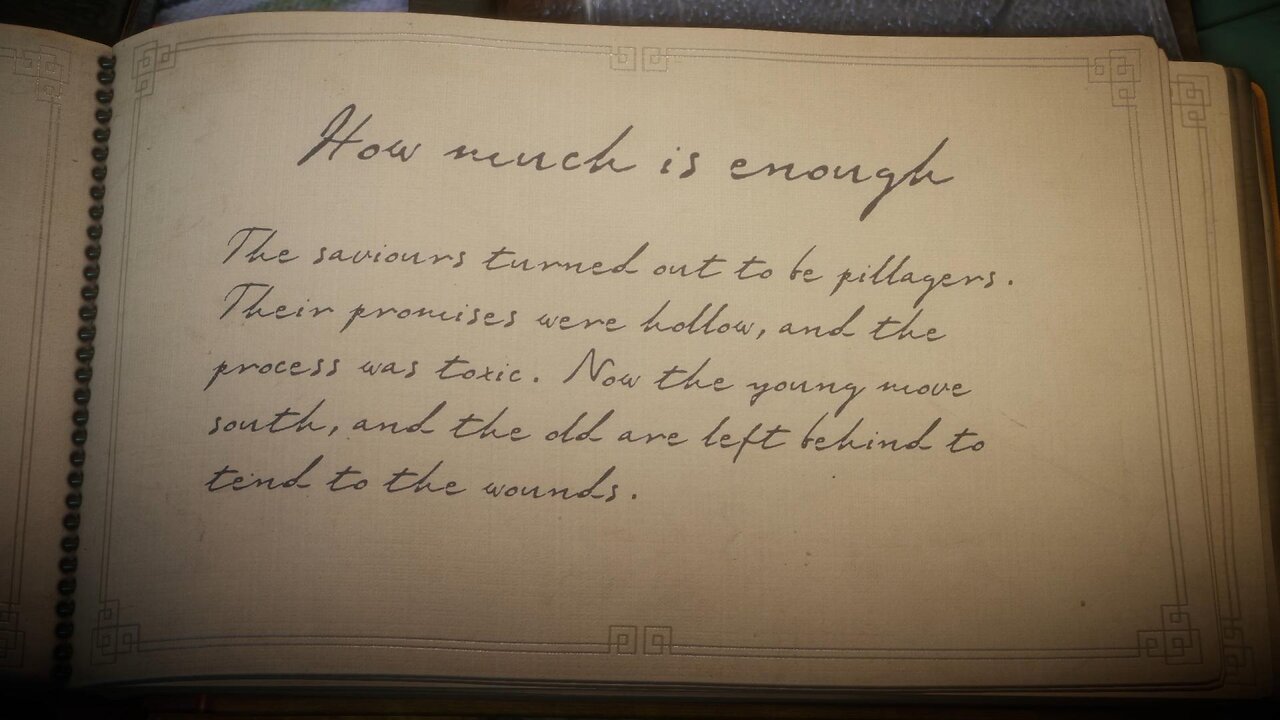 How much is enough
The saviours turned out to be pillagers.
Their promises were hollow, and the
process was toxic. Now the young move
south, and the old are left behind to
tend to the wounds.